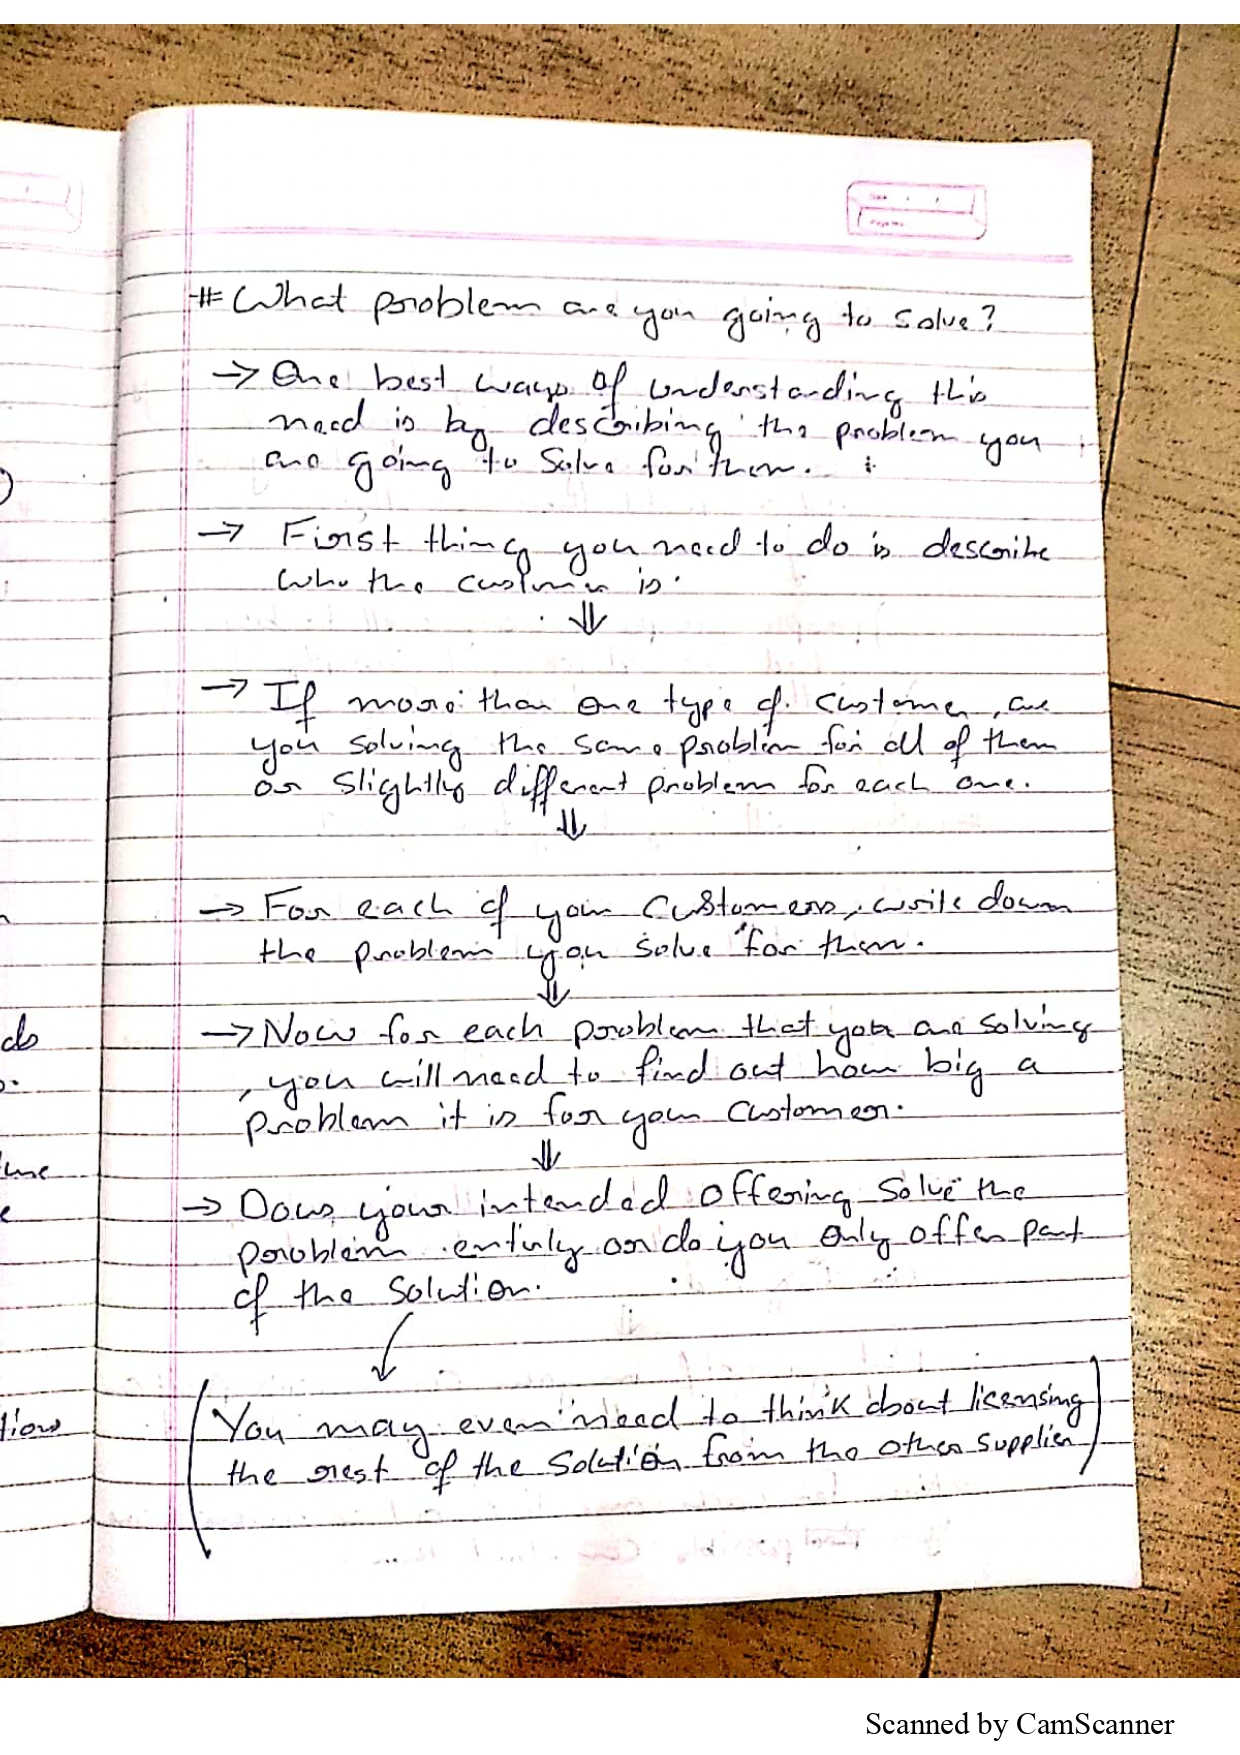 # What problem are you going to solve?
→ One best ways of understanding this
need is by describing the problem you
are going to solve for them.
→ First thing you need to do is describe
who the customer is.
⇓
→ If more than one type of customer, are
you solving the same problem for all of them
or slightly different problem for each one.
⇓
→ For each of your customers, write down
the problem you solve for them.
⇓
→ Now for each problem that you are solving
, you will need to find out how big a
problem it is for your customer.
⇓
→ Does your intended offering solve the
problem entirly or do you only offer part
of the solution.
(You may even need to think about licensing
the rest of the solution from the other supplier)
Scanned by CamScanner